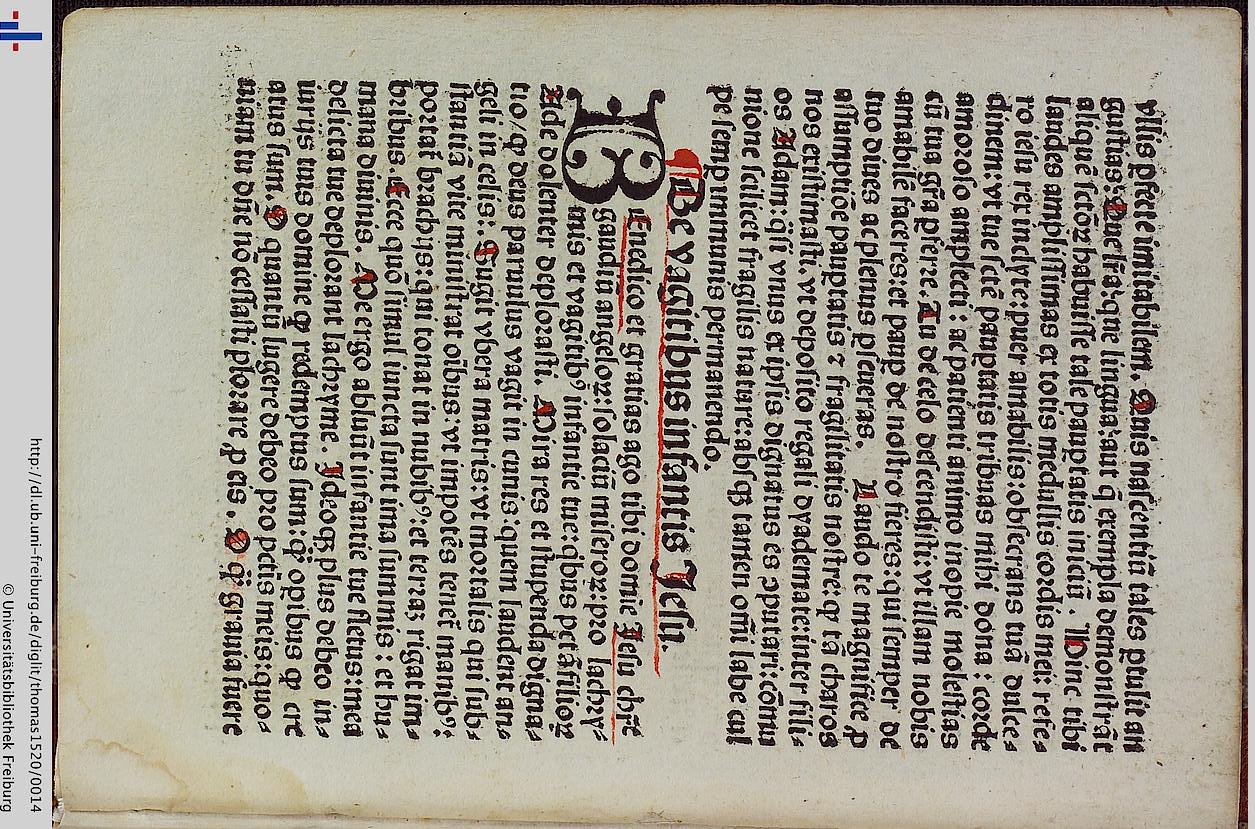 vllis psece imitabilem. Quis nascentiū tales ptulit an
gustias: Que lr̄a: que lingua: aut q̄ exempla demōstrāt
aliquē sctōꝝ habuisse tale pauptatis iniciū. Hinc tibi
laudes amplissimas ex totis medullis cordis mei: refe⸗
ro iesu rex inclyte: puer amabilis: obsecrans tuā dulce⸗
dinem: vt tue scтē pauptatis tribuas mihi dona: corde
amoroso amplecti: ac patienti animo inopie molestias
cū tua gr̄a pferre. Au de celo descendisti: vt illam nobis
amabilē faceres: et paup de nostro fieres: qui semper de
tuo diues ac plenus psseneras. Laudo te magnifice ꝓ
assumptiōe pauptatis ⁊ fragilitatis nostre: qꝫ tā charos
nos existimasti. vt deposito regali dyademate: inter fili⸗
os Adam: q̄si vnus ex ipsis dignatus es ꝯputari: cōmu
nione scilicet fragilis nature: absqꝫ tamen om̄i labe cul
pe semp immunis permanendo.
¶ De vagitibus infantis Jesu.
BEnedico et gratias ago tibi domie Jesu chr̄e
gaudiū angeloꝝ: solaciū miseroꝝ: pro lachry⸗
mis et vagitibꝰ infantie tue: qbus pctā filioꝝ
Ade dolenter deplorasti. Mira res et stupenda digna⸗
tio/ qꝫ deus paruulus vagit in cunis: quem laudent an⸗
geli in celis: Sugit vbera matris: vt mortalis qui sub⸗
stantiā vite ministrat oībus: vt impotēs tenet̄ manibꝰ:
portat̄ brachijs: qui tonat in nubibꝰ: et terraꝫ rigat im⸗
bribus. Ecce quō simul iuncta sunt ima summis: et hu⸗
mana diuinis. Me ergo abluāt infantie tue fletus: mea
delicta tue deplorant lachryme. Ideoqꝫ plus debeo in⸗
iurijs tuis domine qꝫ redemptus sum: q̄ opibus qꝫ cre
atus sum. O quantū lugere debeo pro pctīs meis: quo⸗
niam tu dn̄e nō cessasti plorare ꝓ eis. O q̄ grauia fuere
http://dl.ub.uni-freiburg.de/diglit/thomas1520/0014
© Universitätsbibliothek Freiburg